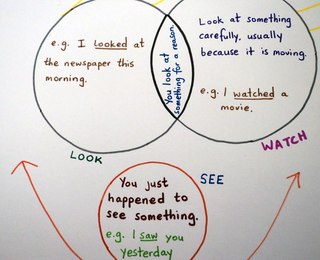 e.g. I looked at
the newspaper this
morning.
You look at
something for a reason
Look at something
carefully, usually
because it is moving.
e.g. I watched a
movie.
LOOK
WATCH
SEE
You just
happened to
see something.
e.g. I saw you
yesterday